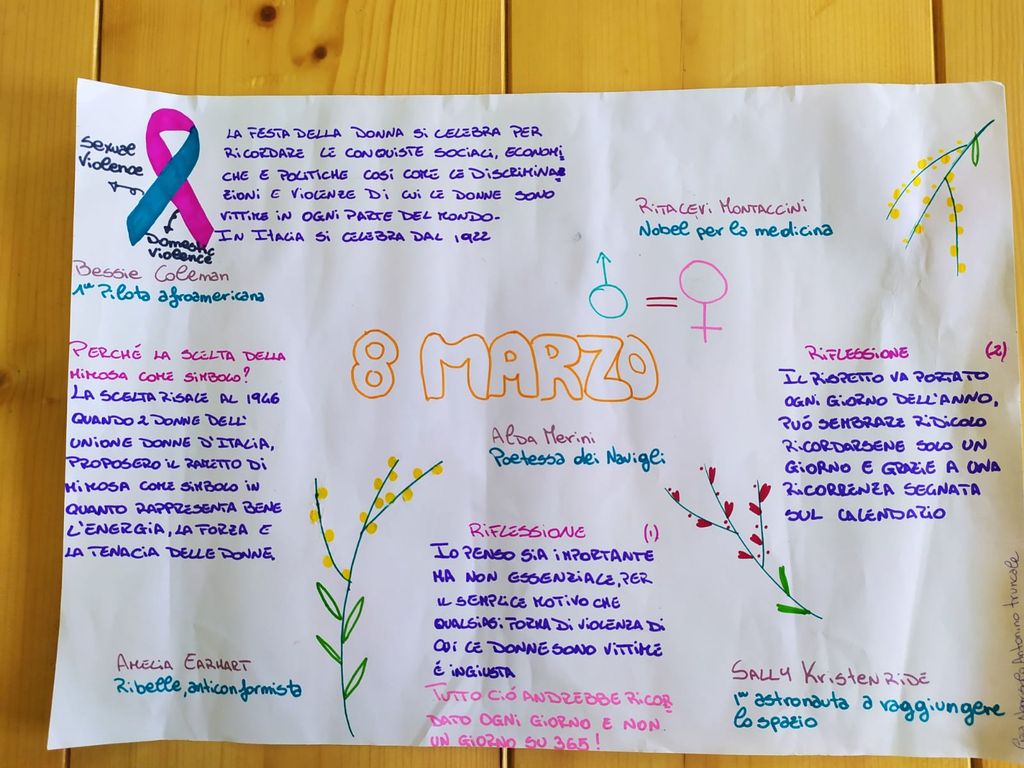 Sexual
Violence
Domestic
Violence
LA FESTA DELLA DONNA SI CELEBRA PER
RICORDARE LE CONQUISTE SOCIALI, ECONOMI
CHE E POLITICHE COSI COME LE DISCRIMINA
ZIONI E VIOLENZE DI CUI LE DONNE SONO
VITTIME IN OGNI PARTE DEL MONDO-
IN ITALIA SI CELEBRA DAL 1922
Bessie Coleman
1ª Pilota afroamericana
RITA LEVI MONTACCINI
Nobel per la medicina
=
8 MARZO
PERCHÉ LA SCELTA DELLA
MIMOSA COME SIMBOLO?
LA SCELTA RISALE AL 1946
QUANDO 2 DONNE DELL'
UNIONE DONNE D'ITALIA,
PROPOSERO IL RAMETTO DI
MIMOSA COME SIMBOLO IN
QUANTO RAPPRESENTA BENE
L'ENERGIA, LA FORZA E
LA TENACIA DELLE DONNE.
Alda Merini
Poetessa dei Navigli
RIFLESSIONE (2)
IL RISPETTO VA PORTATO
OGNI GIORNO DELL'ANNO,
PUÓ SEMBRARE RIDICOLO
RICORDARSENE SOLO UN
GIORNO E GRAZIE A UNA
RICORRENZA SEGNATA
SUL CALENDARIO
RIFLESSIONE (1)
IO PENSO SIA IMPORTANTE
MA NON ESSENZIALE, PER
IL SEMPLICE MOTIVO CHE
QUALSIASI FORMA DI VIOLENZA DI
CUI LE DONNE SONO VITTIME
É INGIUSTA
TUTTO CIÓ ANDREBBE RICOR
DATO OGNI GIORNO E NON
UN GIORNO SU 365!
AMELIA EARHART
Ribelle, anticonformista
SALLY KRISTEN RIDE
1ª astronauta a raggiungere
lo spazio
Antonino truncale